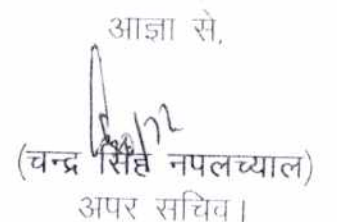 आज्ञा से,
(चन्द्र सिंह नपलच्याल)
अपर सचिव।